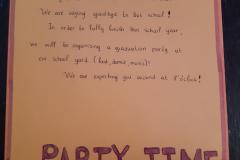 We are saying goodbye to this school!
In order to fully finish this school year,
we will be organising a graduation party at
our school yard (food, dance, music)!
We are expecting you around at 8 o'clock!
PARTY TIME